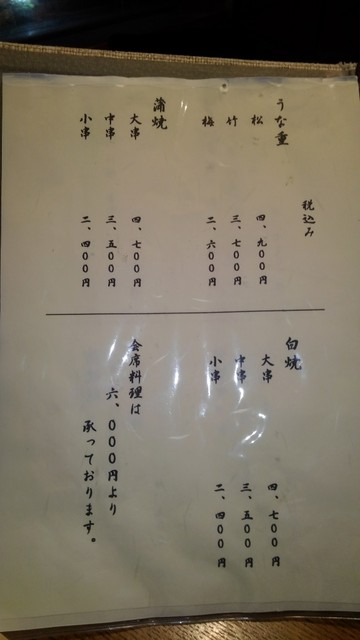 税込み
うな重
松 四、九〇〇円
竹 三、七〇〇円
梅 二、六〇〇円
蒲焼
大串 四、七〇〇円
中串 三、五〇〇円
小串 二、四〇〇円
白焼
大串 四、七〇〇円
中串 三、五〇〇円
小串 二、四〇〇円
会席料理は
六、〇〇〇円より
承っております。